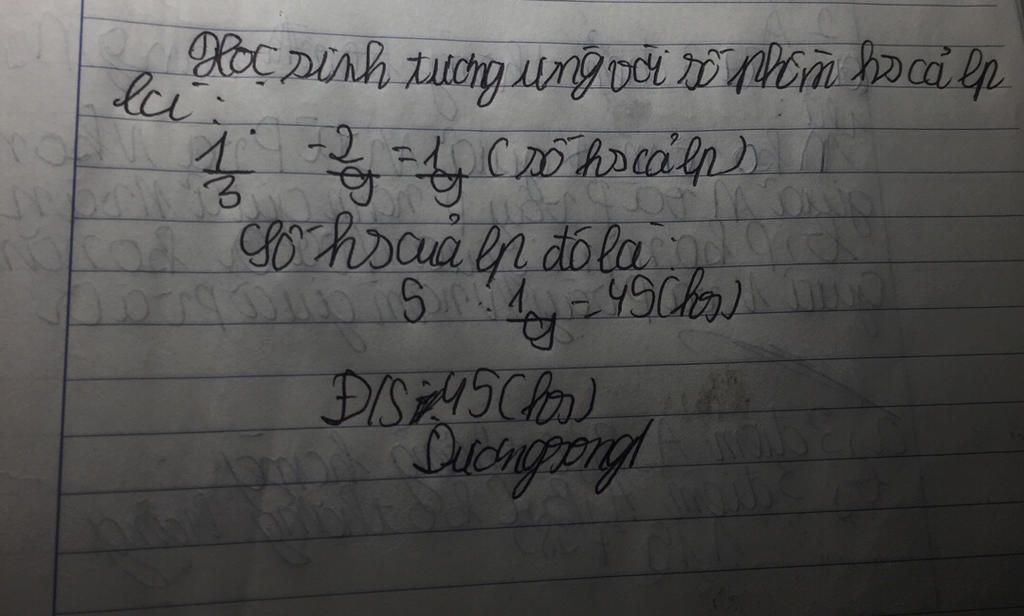 Học sinh tương ứng với số phần hs cả lp
là :
1/3 - 2/9 = 1/9 ( số hs cả lp )
Số hs cuả lp đó là :
5 : 1/9 = 45 (hs)
Đ/S : 45 (hs)